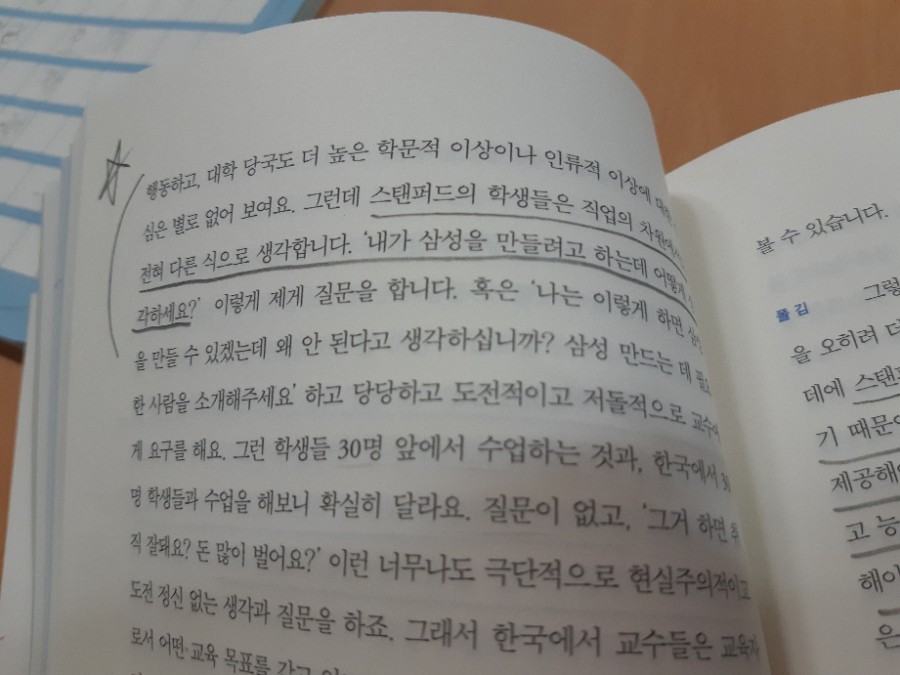 행동하고, 대학 당국도 더 높은 학문적 이상이나 인류적 이상에
심은 별로 없어 보여요. 그런데 스탠퍼드의 학생들은 직업의 차원에서
전혀 다른 식으로 생각합니다. '내가 삼성을 만들려고 하는데 어떻게
각하세요?' 이렇게 제게 질문을 합니다. 혹은 '나는 이렇게 하면
을 만들 수 있겠는데 왜 안 된다고 생각하십니까? 삼성 만드는 데
한 사람을 소개해주세요' 하고 당당하고 도전적이고 저돌적으로 교수에
게 요구를 해요. 그런 학생들 30명 앞에서 수업하는 것과, 한국에서 30
명 학생들과 수업을 해보니 확실히 달라요. 질문이 없고, '그거 하면 취
직 잘돼요? 돈 많이 벌어요?' 이런 너무나도 극단적으로 현실주의적이고
도전 정신 없는 생각과 질문을 하죠. 그래서 한국에서 교수들은 교육자
로서 어떤 교육 목표를 갖고
볼 수 있습니다.
폴 김 그렇
을 오히려 더
데에 스탠퍼
기 때문에
제공해
고 능
해이
은